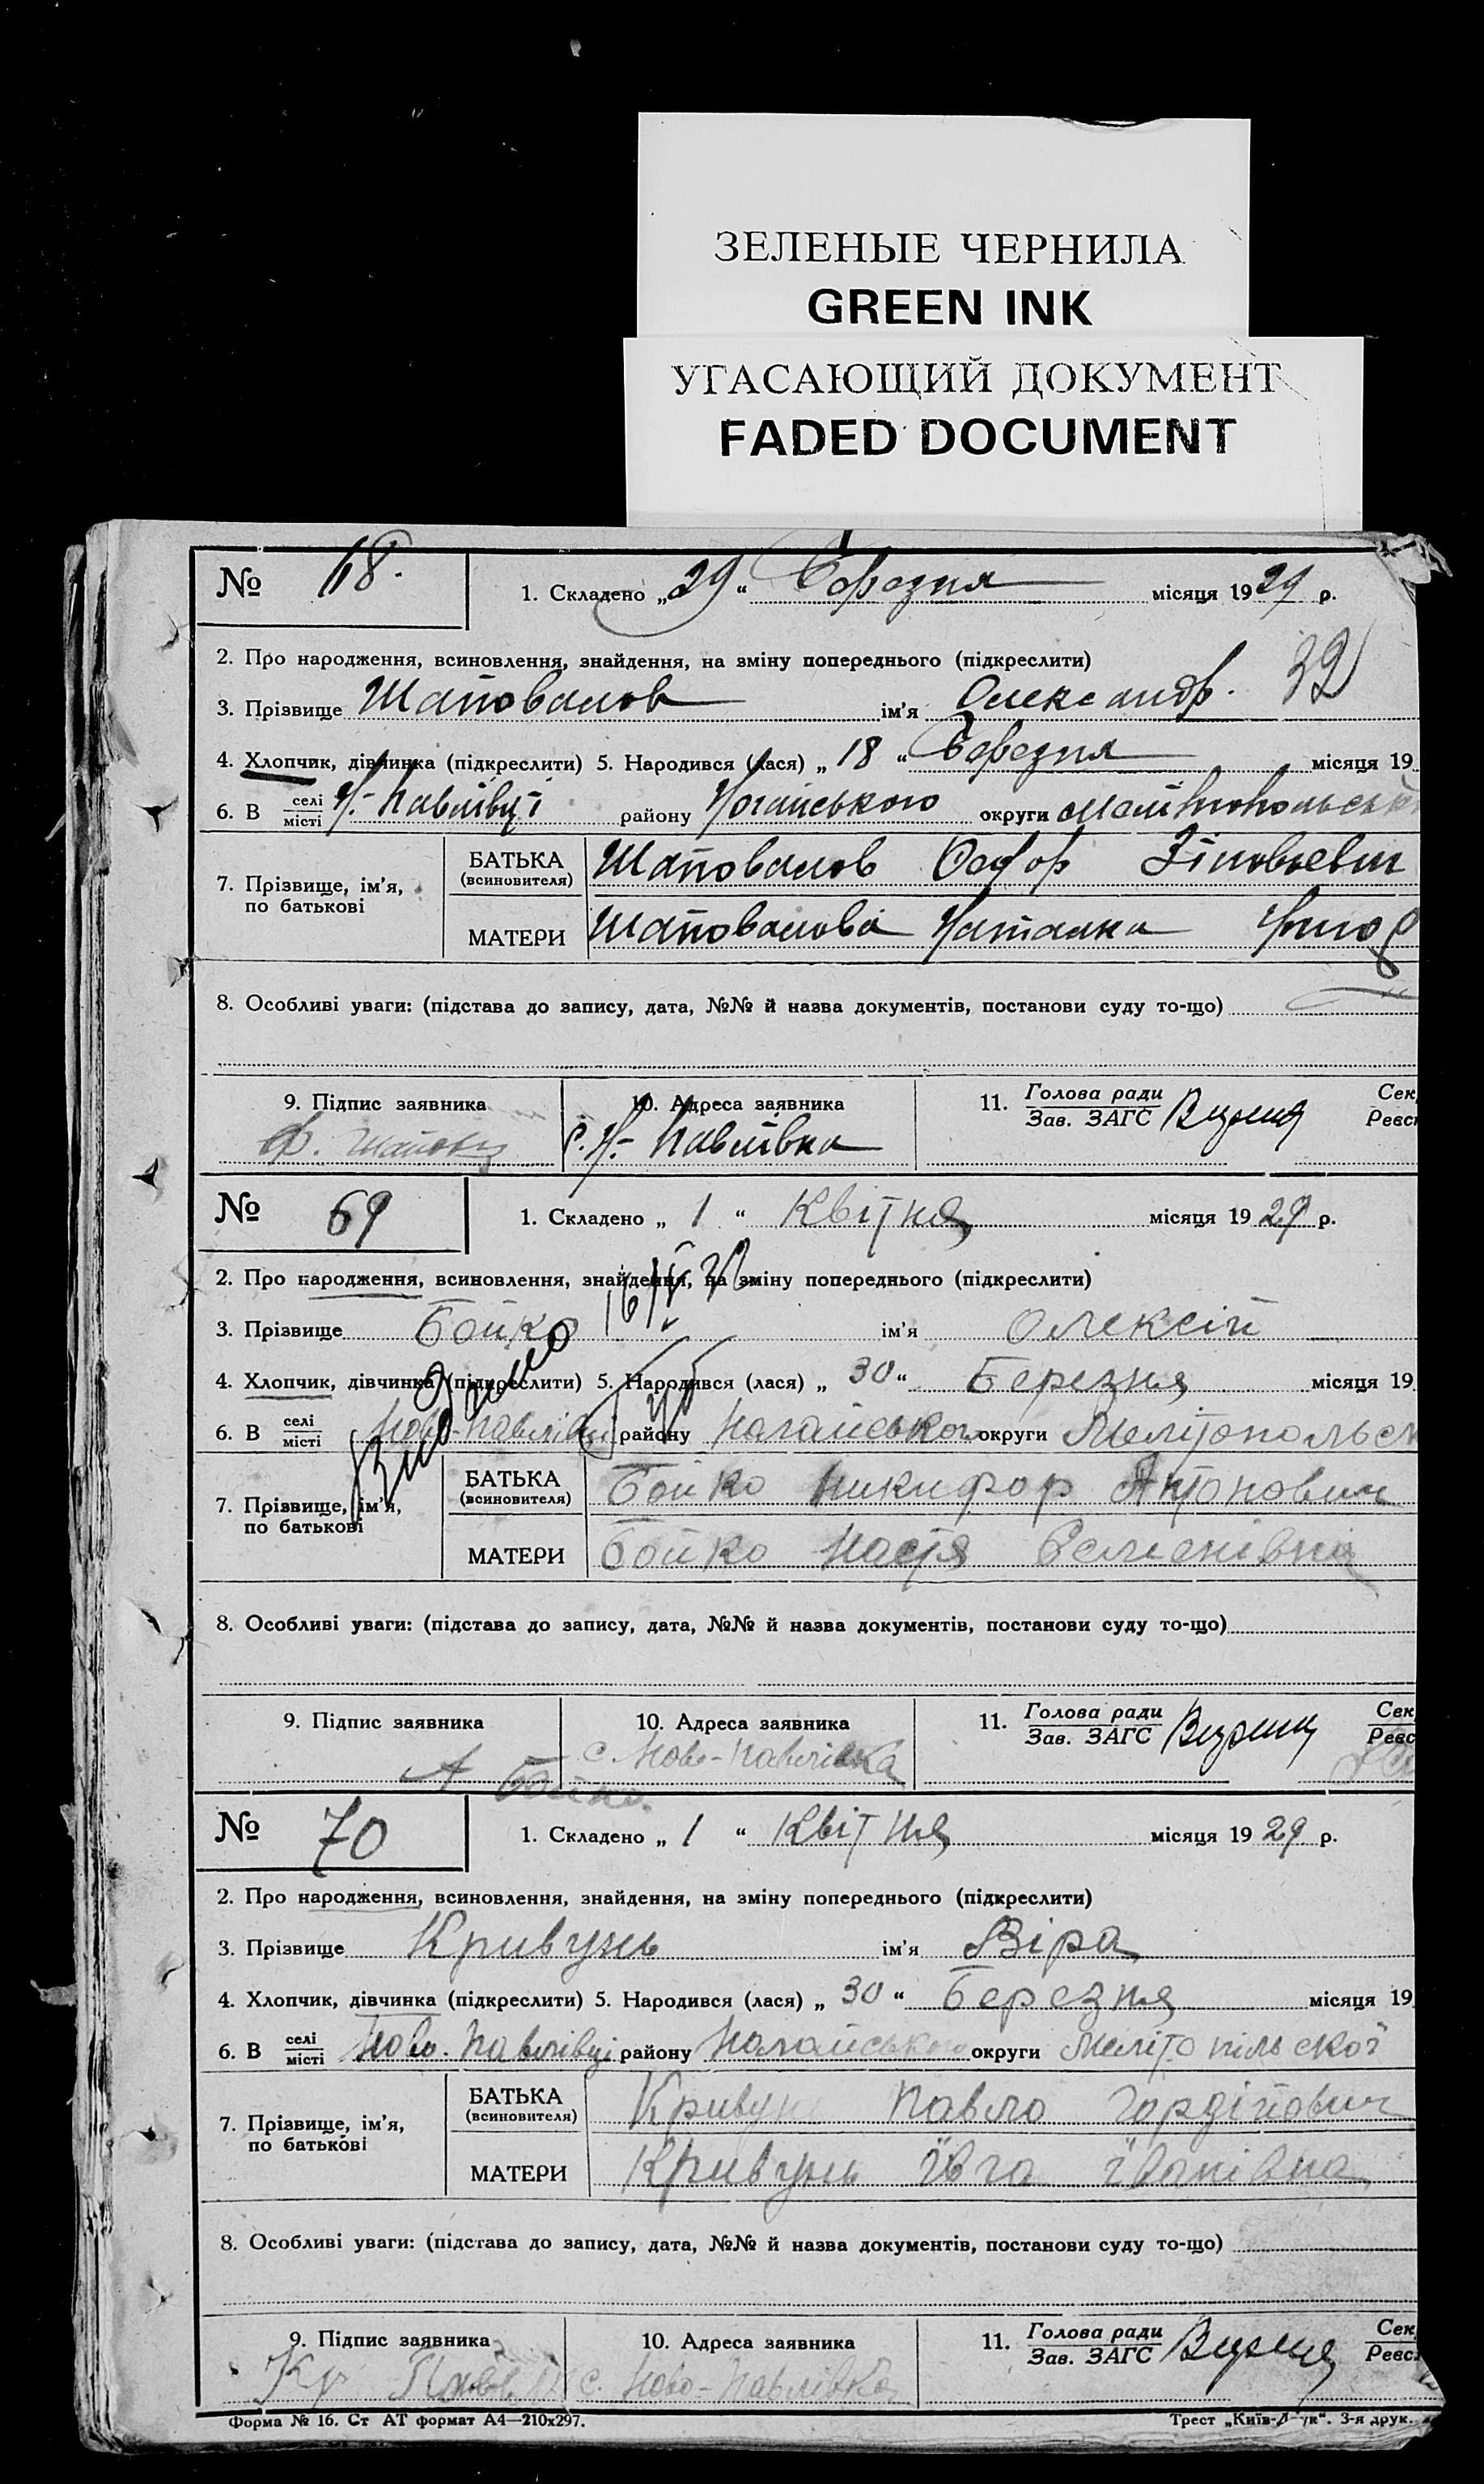 ЗЕЛЕНЫЕ ЧЕРНИЛА
GREEN INK
УГАСАЮЩИЙ ДОКУМЕНТ
FADED DOCUMENT
№ 68. 1. Складено „29“ Березня місяця 1929 р.
2. Про народження, всиновлення, знайдення, на зміну попереднього (підкреслити) 32
3. Прізвище Шаповалов ім'я Олександр.
4. Хлопчик, дівчинка (підкреслити) 5. Народився (лася) „18“ Березня місяця 19
6. В селі/місті Н-Павлівці району Ногайського округи
7. Прізвище, ім'я, по батькові
БАТЬКА (всиновителя) Шаповалов Зіновьевич
МАТЕРИ Шаповалова Наталка
8. Особливі уваги: (підстава до запису, дата, №№ й назва документів, постанови суду то-що)
9. Підпис заявника 10. Адреса заявника 11. Голова ради Сек
Зав. ЗАГС Ревс
с. Н-Павлівка
№ 69 1. Складено „1“ Квітня місяця 1929 р.
2. Про народження, всиновлення, знайдення, на зміну попереднього (підкреслити)
3. Прізвище Бойко ім'я Олексій
4. Хлопчик, дівчинка (підкреслити) 5. Народився (лася) „30“ Березня місяця 19
6. В селі/місті Ново-Павлівці району Ногайського округи Мелітопольськ
7. Прізвище, ім'я, по батькові
БАТЬКА (всиновителя) Бойко Никифор Антонович
МАТЕРИ Бойко Настя Семенівна
8. Особливі уваги: (підстава до запису, дата, №№ й назва документів, постанови суду то-що)
9. Підпис заявника 10. Адреса заявника 11. Голова ради Сек
Зав. ЗАГС Ревс
с. Ново-Павлівка
Бойко.
№ 70 1. Складено „1“ Квітня місяця 1929 р.
2. Про народження, всиновлення, знайдення, на зміну попереднього (підкреслити)
3. Прізвище Кривунь ім'я Віра
4. Хлопчик, дівчинка (підкреслити) 5. Народився (лася) „30“ Березня місяця 19
6. В селі/місті Ново-Павлівці району Ногайського округи Мелітопільської
7. Прізвище, ім'я, по батькові
БАТЬКА (всиновителя) Кривунь Павло Гордійович
МАТЕРИ Кривунь Ївга Їванівна
8. Особливі уваги: (підстава до запису, дата, №№ й назва документів, постанови суду то-що)
9. Підпис заявника 10. Адреса заявника 11. Голова ради Сек
Зав. ЗАГС Ревс
с. Ново-Павлівка
Форма № 16. Ст АТ формат А4—210х297. Трест 3-я друк.